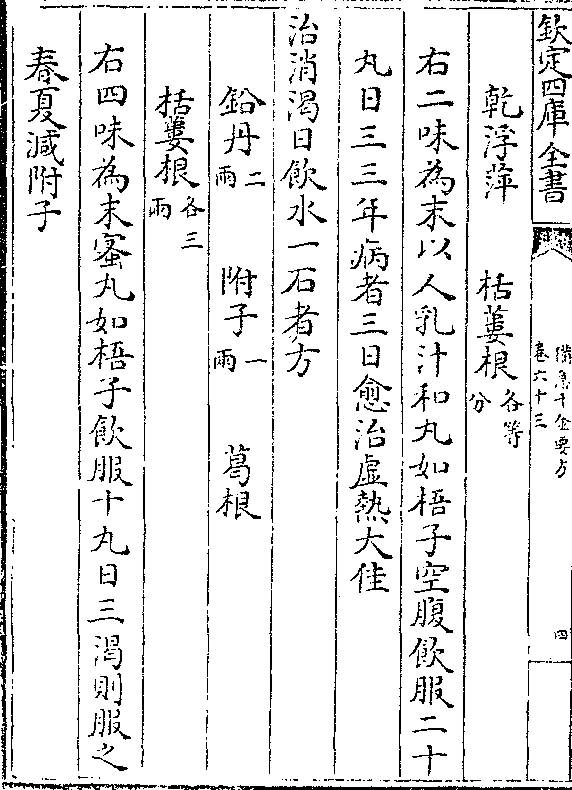 欽定四庫全書
備急千金要方
卷六十三
四
乾浮萍 栝蔞根各等分
右二味為末以人乳汁和丸如梧子空腹飲服二十
丸日三三年病者三日愈治虛熱大佳
治消渴日飲水一石者方
鉛丹二兩 附子一兩 葛根
栝蔞根各三兩
右四味為末蜜丸如梧子飲服十丸日三渴則服之
春夏減附子